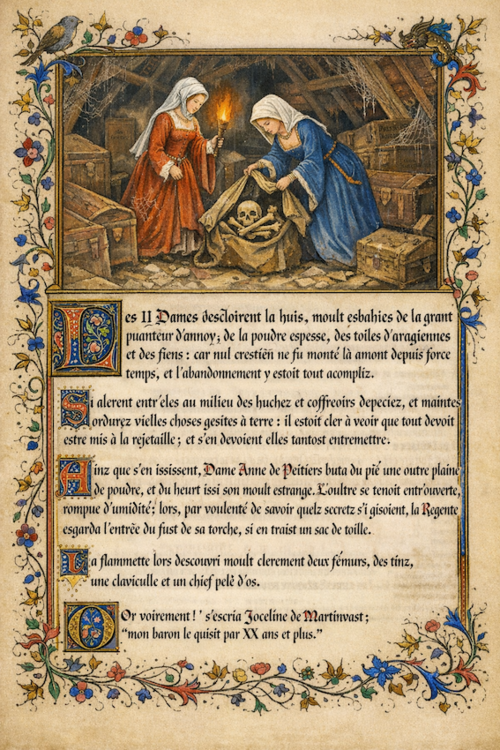 Les II Dames descloirent la huis, moult esbahies de la grant
puanteur d'annoy; de la poudre espesse, des toiles d'aragiennes
et des fiens : car nul crestiën ne fu monté là amont depuis force
temps, et l'abandonnement y estoit tout acompliz.
Si alerent entr'eles au milieu des huchez et coffreoirs depeciez, et maintes
ordurez vielles choses gesites à terre : il estoit cler à veoir que tout devoit
estre mis à la rejetaille ; et s'en devoient elles tantost entremettre.
Ainz que s'en ississent, Dame Anne de Peitiers buta du pié une outre plaine
de poudre, et du heurt issi son moult estrange. L'oultre se tenoit entr'ouverte,
rompue d'umidité; lors, par voulenté de savoir quelz secretz s'i gisoient, la Regente
esgarda l'entrée du fust de sa torche, si en traist un sac de toille.
La flammette lors descouvri moult clerement deux fémurs, des tinz,
une claviculle et un chief pelé d'os.
Or voirement ! ' s'escria Joceline de Martinvast ;
"mon baron le quisit par XX ans et plus."